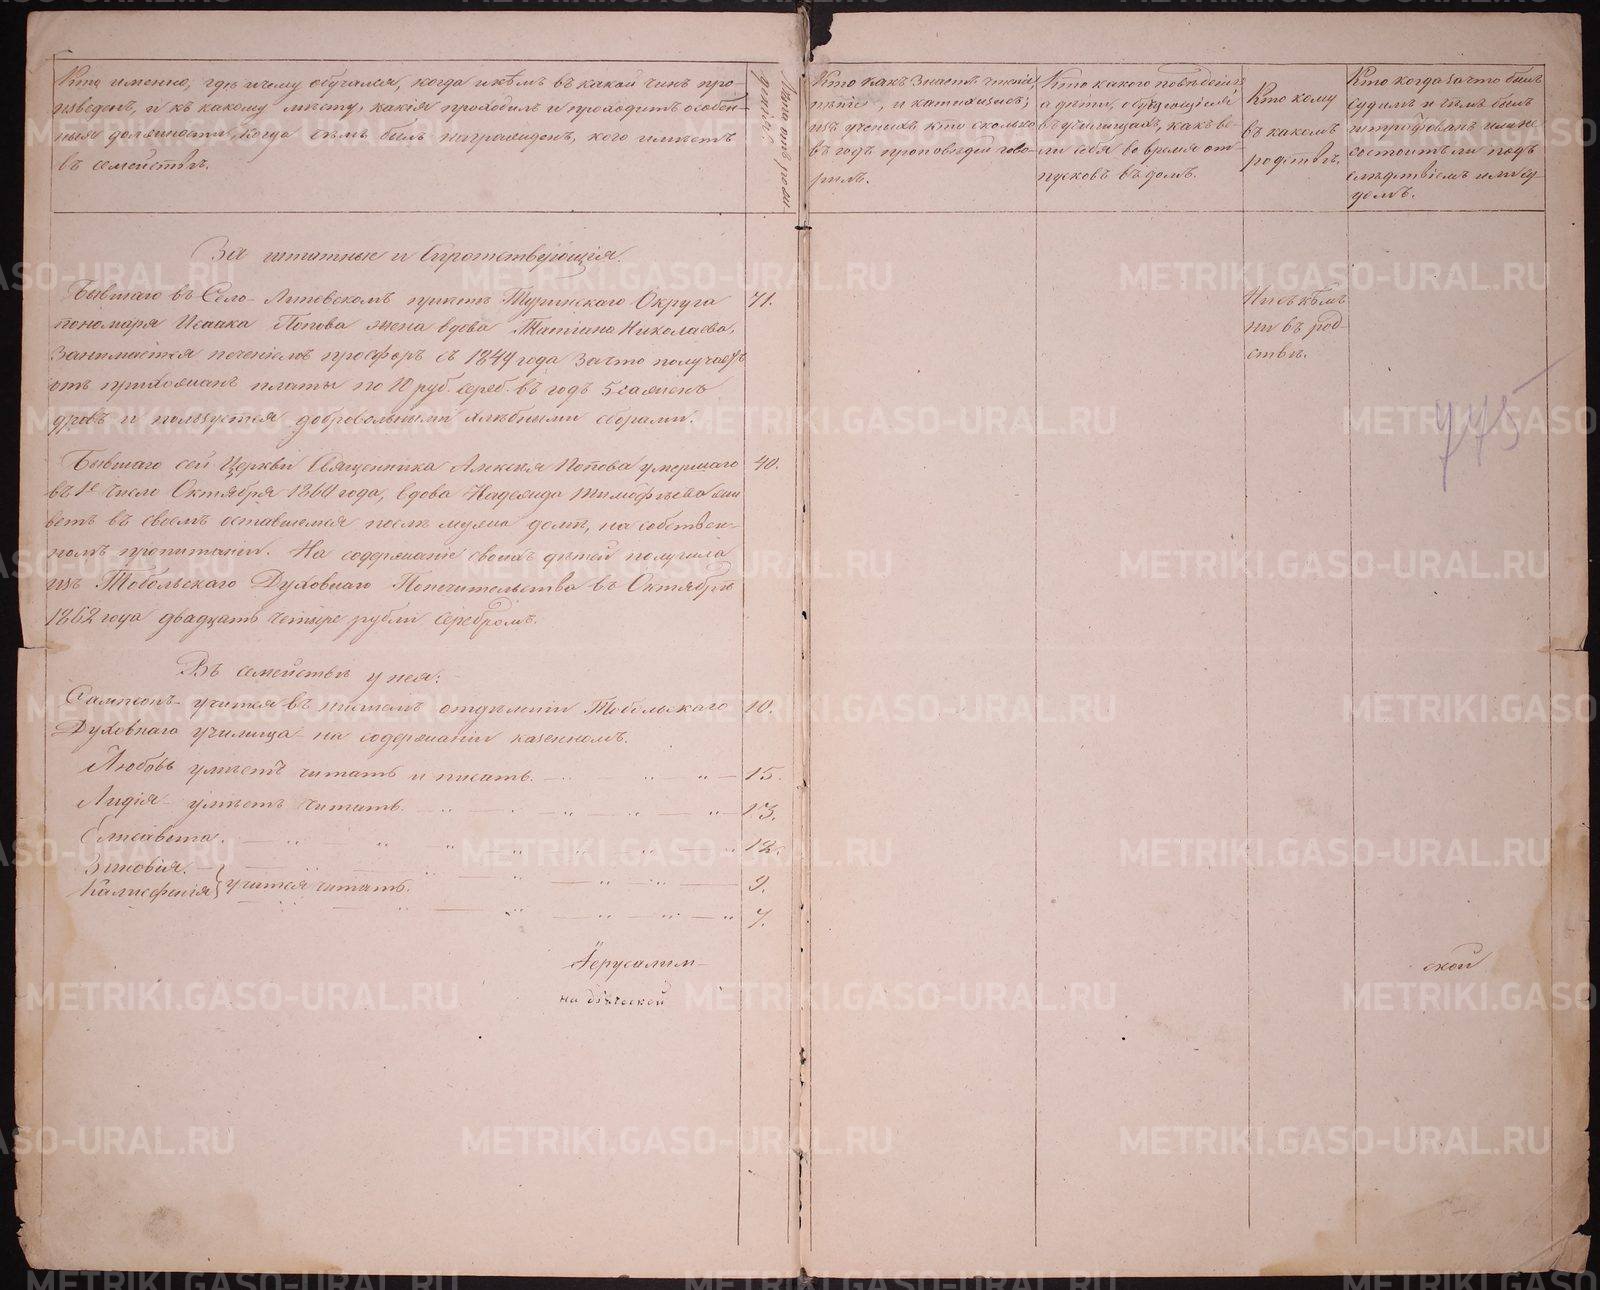 Кто именно, гдѣ и чему обучался, когда и кѣмъ въ какой чинъ про-
изведенъ, и къ какому мѣсту, какія проходилъ и проходитъ особен-
ныя должности, когда чѣмъ былъ награжденъ, кого имѣетъ
въ семействѣ.
Лѣта отъ рож-
денія.
Кто какъ знаетъ чтеніе,
пѣніе, и катихизисъ;
изъ ученыхъ кто сколько
въ годъ проповѣдей гово-
рилъ.
Кто какого поведенія
а дѣти, обучающіеся
въ училищахъ, какъ ве-
ли себя во время от-
пусковъ въ домъ.
Кто кому
въ какомъ
родствѣ.
Кто когда за что былъ
судимъ и чѣмъ былъ
штрафованъ или не
состоитъ ли подъ
слѣдствіемъ или су-
домъ.
За штатные и Сиротствующія.
Бывшаго въ Село-Липовскомъ причтѣ Туринскаго Округа 71.
пономаря Исаака Попова жена вдова Татіана Николаева,
Занимается печеніемъ просфоръ съ 1844 года за что получаетъ
отъ прихожанъ платы по 10 руб. сереб. въ годъ 5 саженъ
дровъ и пользуется добровольными хлѣбными сборами.
Ни съ кѣмъ
ни въ род-
ствѣ.
775
Бывшаго сей Церкви Священника Алексѣя Попова умершаго 40.
въ 1е число Октября 1860 года, вдова Надежда Тимофѣева жи
ветъ въ своемъ оставшемся послѣ мужа домѣ, на собствен-
номъ пропитаніи. На содержаніе своихъ дѣтей получила
изъ Тобольскаго Духовнаго Попечительства въ Октябрѣ
1862 года двадцать четыре рубли серебромъ.
Въ семействѣ у нея:
Сампсонъ учится въ низшемъ отдѣленіи Тобольскаго 10.
Духовнаго училища на содержаніи казенномъ.
Любовь умѣетъ читать и писать. 15.
Лидія умѣетъ читать. 13.
Елисавета. 12.
Зиновія. 9.
Калисфенія } учится читать. 7.
Іерусалим- ской
на дѣвческой